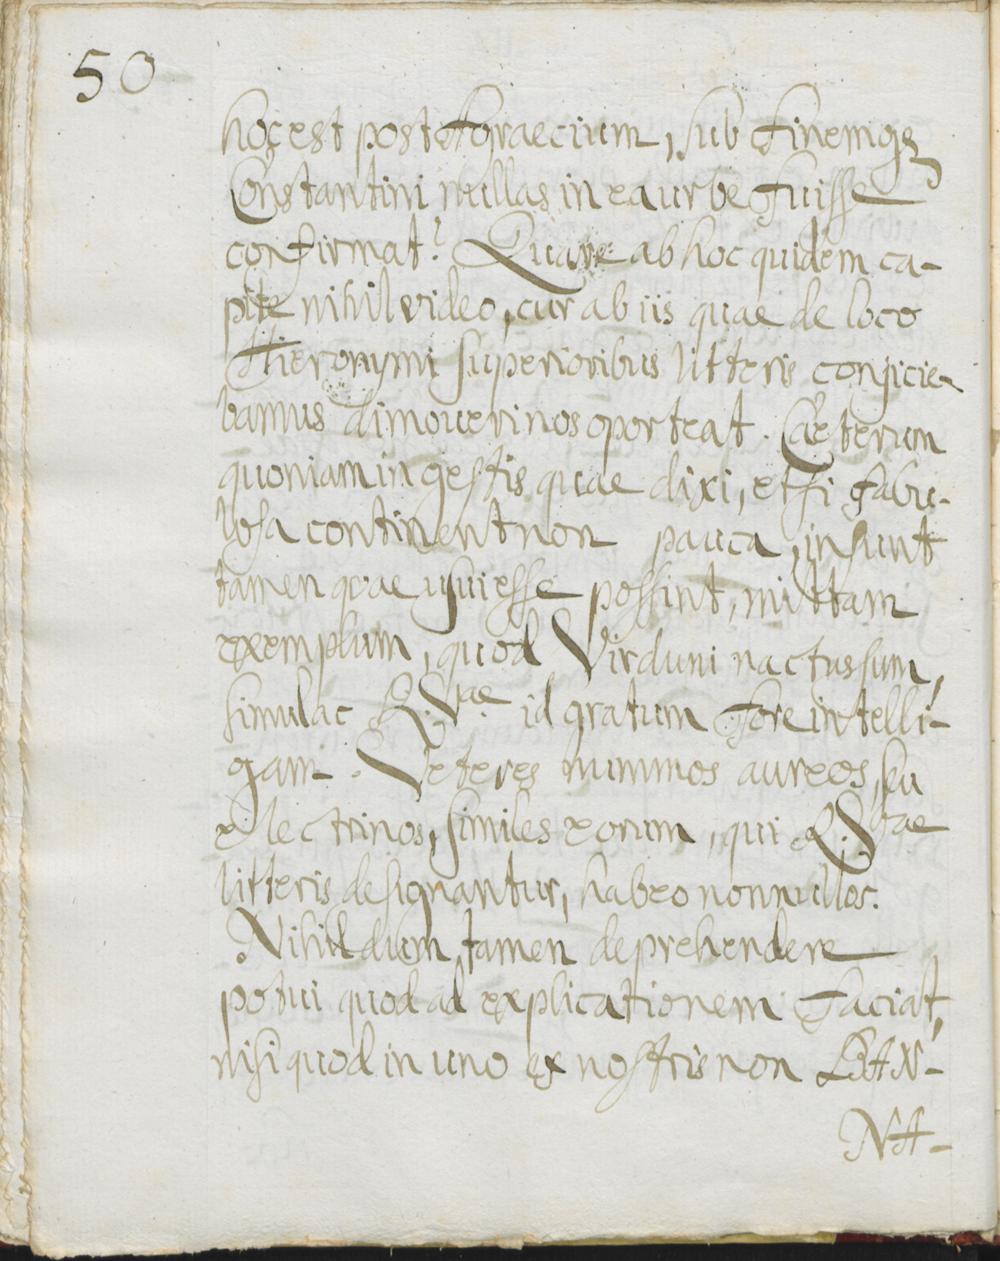 50
hoc est post Graecium, sub finemq;
Constantini nullas in ea urbe fuisse
confirmat? Quare ab hoc quidem ca-
pite nihil video, cur ab iis quae de loco
Hieronymi superioribus litteris conjicie-
bamus dimoueri nos oporteat. Caeterum
quoniam in gestis quae dixi, etsi fabu-
losa continent non pauca, insunt
tamen quae usui esse possint, mittam
exemplum, quod Virduni nactus sum,
simulac R. Vae id gratum fore intelli-
gam. Veteres nummos aureos, seu
electrinos, similes eorum, qui R. Vae
litteris designantur, habeo nonnullos.
Nihil dum tamen deprehendere
potui quod ad explicationem faciat,
nisi quod in uno ex nostris non BAN-
NA-